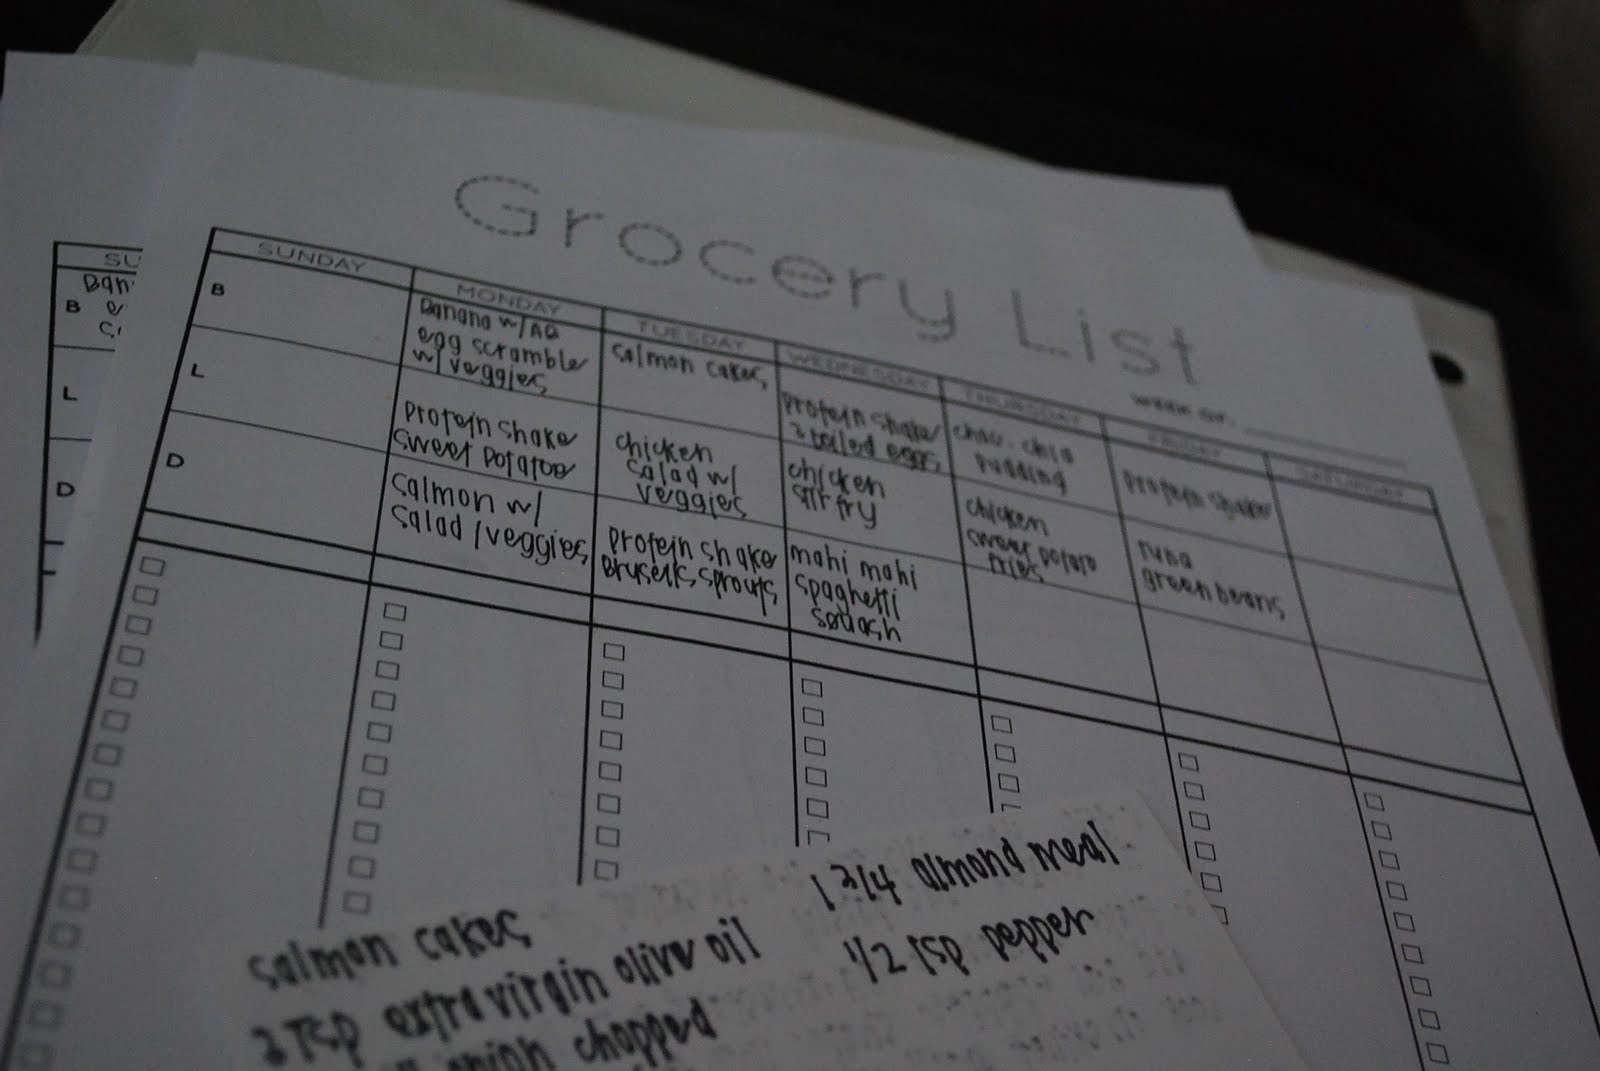 Grocery List
WEEK OF:
SUNDAY MONDAY TUESDAY WEDNESDAY THURSDAY FRIDAY SATURDAY
B
Banana w/AB
egg scramble
w/ veggies
salmon cakes
protein shake
2 boiled eggs
choc. chia
pudding
protein shake
L
protein shake
sweet potatoe
chicken
salad w/
veggies
chicken
stir fry
chicken
sweet potato
fries
tuna
green beans
D
salmon w/
salad /veggies
protein shake
Brusells sprouts
mahi mahi
spaghetti
sqaush
SU
Ban
B
L
D
salmon cakes
2 TSP extra virgin olive oil
onion chopped
1 3/4 almond meal
1/2 TSP pepper